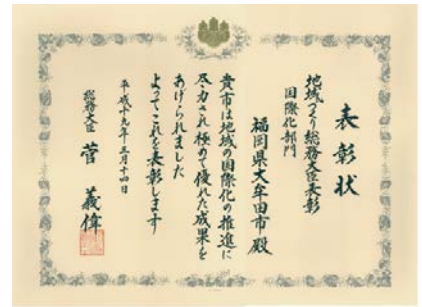 表彰状
地域づくり総務大臣表彰
国際化部門
福岡県大牟田市殿
貴市は地域の国際化の推進に
尽力され極めて優れた成果を
あげられました
よってこれを表彰します
平成十九年三月十四日
総務大臣 菅 義偉